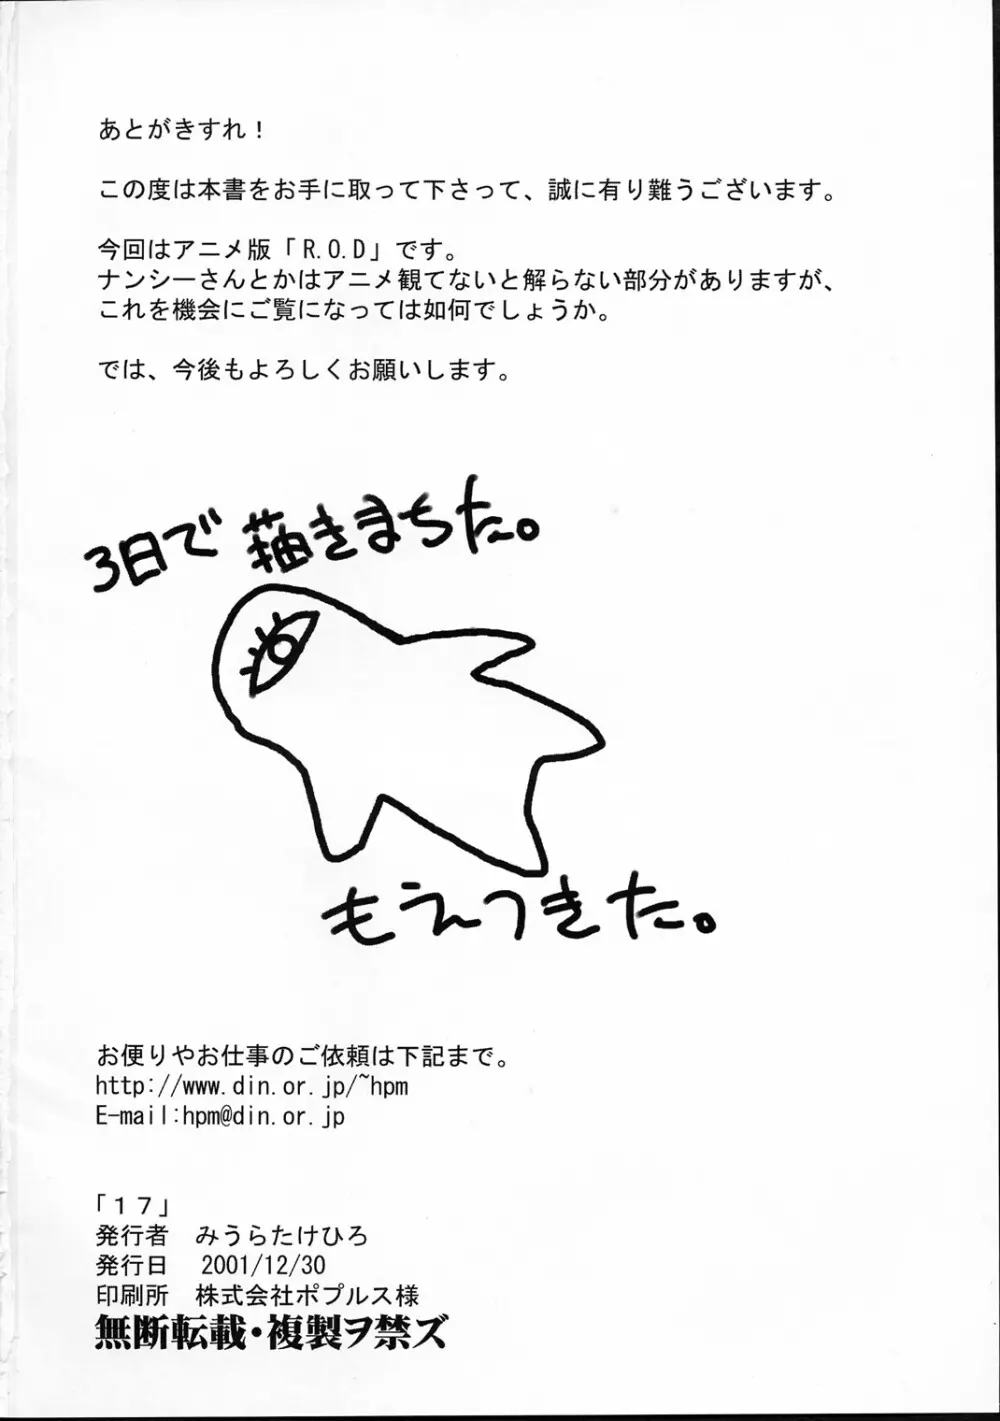 あとがきすれ！
この度は本書をお手に取って下さって、誠に有り難うございます。
今回はアニメ版「R.O.D」です。
ナンシーさんとかはアニメ観てないと解らない部分がありますが、
これを機会にご覧になっては如何でしょうか。
では、今後もよろしくお願いします。
3日で描きまちた。
もえつきた。
お便りやお仕事のご依頼は下記まで。
http://www.din.or.jp/~hpm
E-mail:hpm@din.or.jp
「１７」
発行者　みうらたけひろ
発行日　2001/12/30
印刷所　株式会社ポプルス様
無断転載・複製ヲ禁ズ